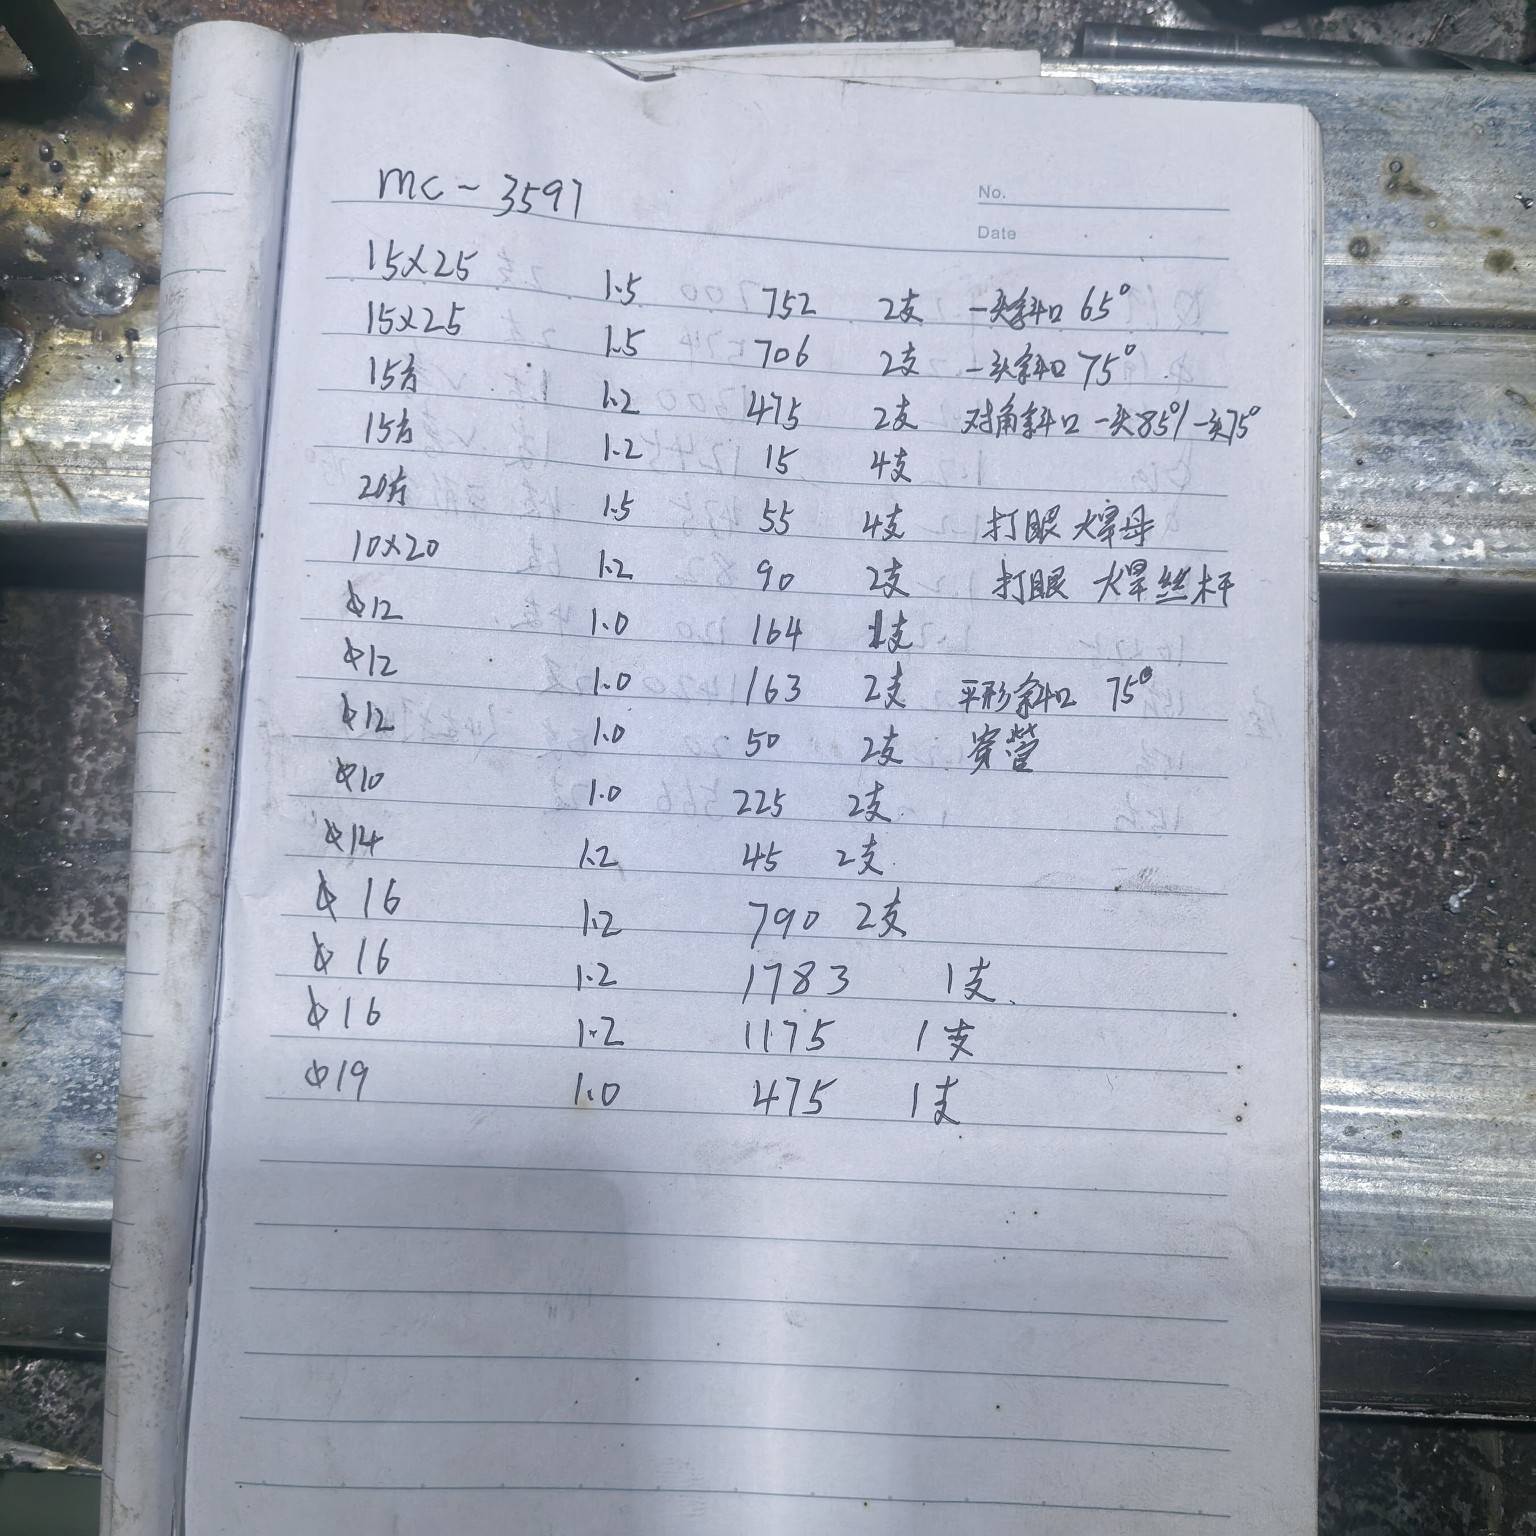 mc-3597
No.
Date
15×25 1.5 752 2支 一头斜口 65°
15×25 1.5 706 2支 一头斜口 75°
15方 1.2 475 2支 对角斜口 一头85°/一头75°
15方 1.2 15 4支
20方 1.5 55 4支 打眼 焊母
10×20 1.2 90 2支 打眼 焊丝杆
φ12 1.0 164 1支
φ12 1.0 163 2支 平形斜口 75°
φ12 1.0 50 2支 穿管
φ10 1.0 225 2支
φ14 1.2 45 2支
φ16 1.2 790 2支
φ16 1.2 1783 1支
φ16 1.2 1175 1支
φ19 1.0 475 1支